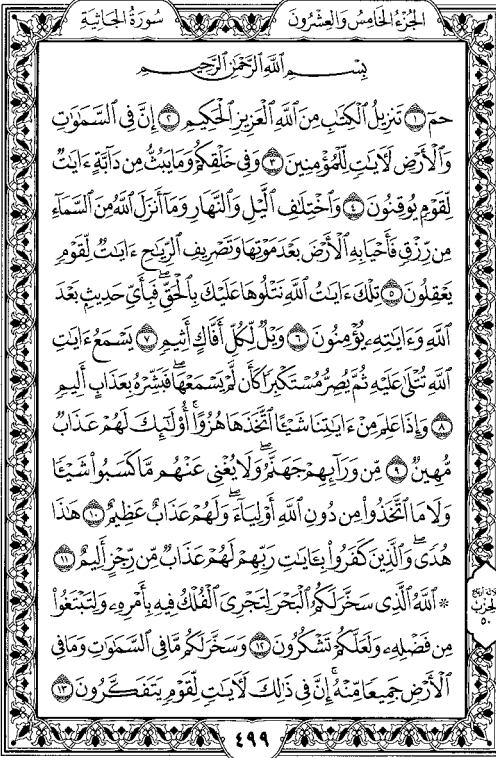 سُورَةُ الجَاثِيَةِ
الجُزْءُ الخَامِسُ وَالعِشْرُونَ
بِسْمِ اللَّهِ الرَّحْمَٰنِ الرَّحِيمِ
حمٓ ۝١ تَنزِيلُ ٱلْكِتَٰبِ مِنَ ٱللَّهِ ٱلْعَزِيزِ ٱلْحَكِيمِ ۝٢ إِنَّ فِى ٱلسَّمَٰوَٰتِ
وَٱلْأَرْضِ لَءَايَٰتٍ لِّلْمُؤْمِنِينَ ۝٣ وَفِى خَلْقِكُمْ وَمَا يَبُثُّ مِن دَآبَّةٍ ءَايَٰتٌ
لِّقَوْمٍ يُوقِنُونَ ۝٤ وَٱخْتِلَٰفِ ٱلَّيْلِ وَٱلنَّهَارِ وَمَآ أَنزَلَ ٱللَّهُ مِنَ ٱلسَّمَآءِ
مِن رِّزْقٍ فَأَحْيَا بِهِ ٱلْأَرْضَ بَعْدَ مَوْتِهَا وَتَصْرِيفِ ٱلرِّيَٰحِ ءَايَٰتٌ لِّقَوْمٍ
يَعْقِلُونَ ۝٥ تِلْكَ ءَايَٰتُ ٱللَّهِ نَتْلُوهَا عَلَيْكَ بِٱلْحَقِّ ۖ فَبِأَىِّ حَدِيثٍۭ بَعْدَ
ٱللَّهِ وَءَايَٰتِهِۦ يُؤْمِنُونَ ۝٦ وَيْلٌ لِّكُلِّ أَفَّاكٍ أَثِيمٍ ۝٧ يَسْمَعُ ءَايَٰتِ
ٱللَّهِ تُتْلَىٰ عَلَيْهِ ثُمَّ يُصِرُّ مُسْتَكْبِرًا كَأَن لَّمْ يَسْمَعْهَا ۖ فَبَشِّرْهُ بِعَذَابٍ أَلِيمٍ
۝٨ وَإِذَا عَلِمَ مِنْ ءَايَٰتِنَا شَيْـًٔا ٱتَّخَذَهَا هُزُوًا ۚ أُو۟لَٰٓئِكَ لَهُمْ عَذَابٌ
مُّهِينٌ ۝٩ مِّن وَرَآئِهِمْ جَهَنَّمُ ۖ وَلَا يُغْنِى عَنْهُم مَّا كَسَبُوا۟ شَيْـًٔا
وَلَا مَا ٱتَّخَذُوا۟ مِن دُونِ ٱللَّهِ أَوْلِيَآءَ ۖ وَلَهُمْ عَذَابٌ عَظِيمٌ ۝١٠ هَٰذَا
هُدًى ۖ وَٱلَّذِينَ كَفَرُوا۟ بِـَٔايَٰتِ رَبِّهِمْ لَهُمْ عَذَابٌ مِّن رِّجْزٍ أَلِيمٌ ۝١١
۞ ٱللَّهُ ٱلَّذِى سَخَّرَ لَكُمُ ٱلْبَحْرَ لِتَجْرِىَ ٱلْفُلْكُ فِيهِ بِأَمْرِهِۦ وَلِتَبْتَغُوا۟
مِن فَضْلِهِۦ وَلَعَلَّكُمْ تَشْكُرُونَ ۝١٢ وَسَخَّرَ لَكُم مَّا فِى ٱلسَّمَٰوَٰتِ وَمَا فِى
ٱلْأَرْضِ جَمِيعًا مِّنْهُ ۚ إِنَّ فِى ذَٰلِكَ لَءَايَٰتٍ لِّقَوْمٍ يَتَفَكَّرُونَ ۝١٣
الحِزْبُ
٥٠
٤٩٩